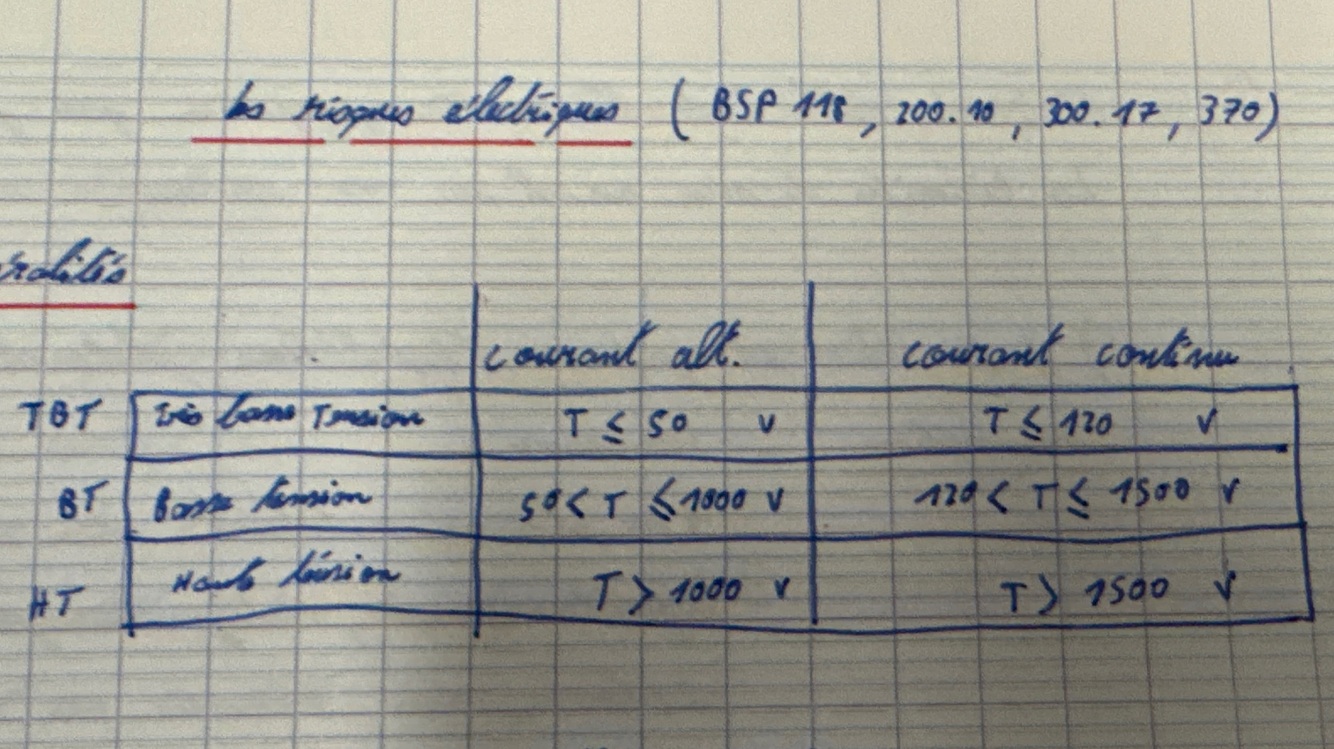 Les risques électriques (BSP 118, 200.10, 300.17, 370)
ralités
courant alt. courant continu
TBT Très basse Tension T ≤ 50 V T ≤ 120 V
BT Basse tension 50 < T ≤ 1000 V 120 < T ≤ 1500 V
HT Haute tension T > 1000 V T > 1500 V